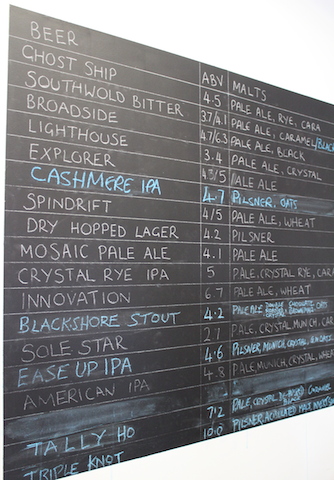 BEER ABV MALTS
GHOST SHIP 4.5 PALE ALE, RYE, CARA
SOUTHWOLD BITTER 3.7/4.1 PALE ALE, CARAMEL/BLACK
BROADSIDE 4.7/6.3 PALE ALE, BLACK
LIGHTHOUSE 3.4 PALE ALE, CRYSTAL
EXPLORER PALE ALE
CASHMERE IPA 4.7 PILSNER, OATS
SPINDRIFT 4/5 PALE ALE, WHEAT
DRY HOPPED LAGER 4.2 PILSNER
MOSAIC PALE ALE 4.1 PALE ALE
CRYSTAL RYE IPA 5 PALE, CRYSTAL RYE, CARA
INNOVATION 6.7 PALE ALE, WHEAT
BLACKSHORE STOUT 4.2 PALE ALE
SOLE STAR 2.7 PALE, CRYSTAL, MUNICH, CAR
EASE UP IPA 4.6 PILSNER, MUNICH, CRYSTAL
AMERICAN IPA 4.8 PALE, MUNICH, CRYSTAL, WHE
TALLY HO 7.2 PALE, CRYSTAL
TRIPLE KNOT 10.0 PILSNER, ACIDULATED MALT